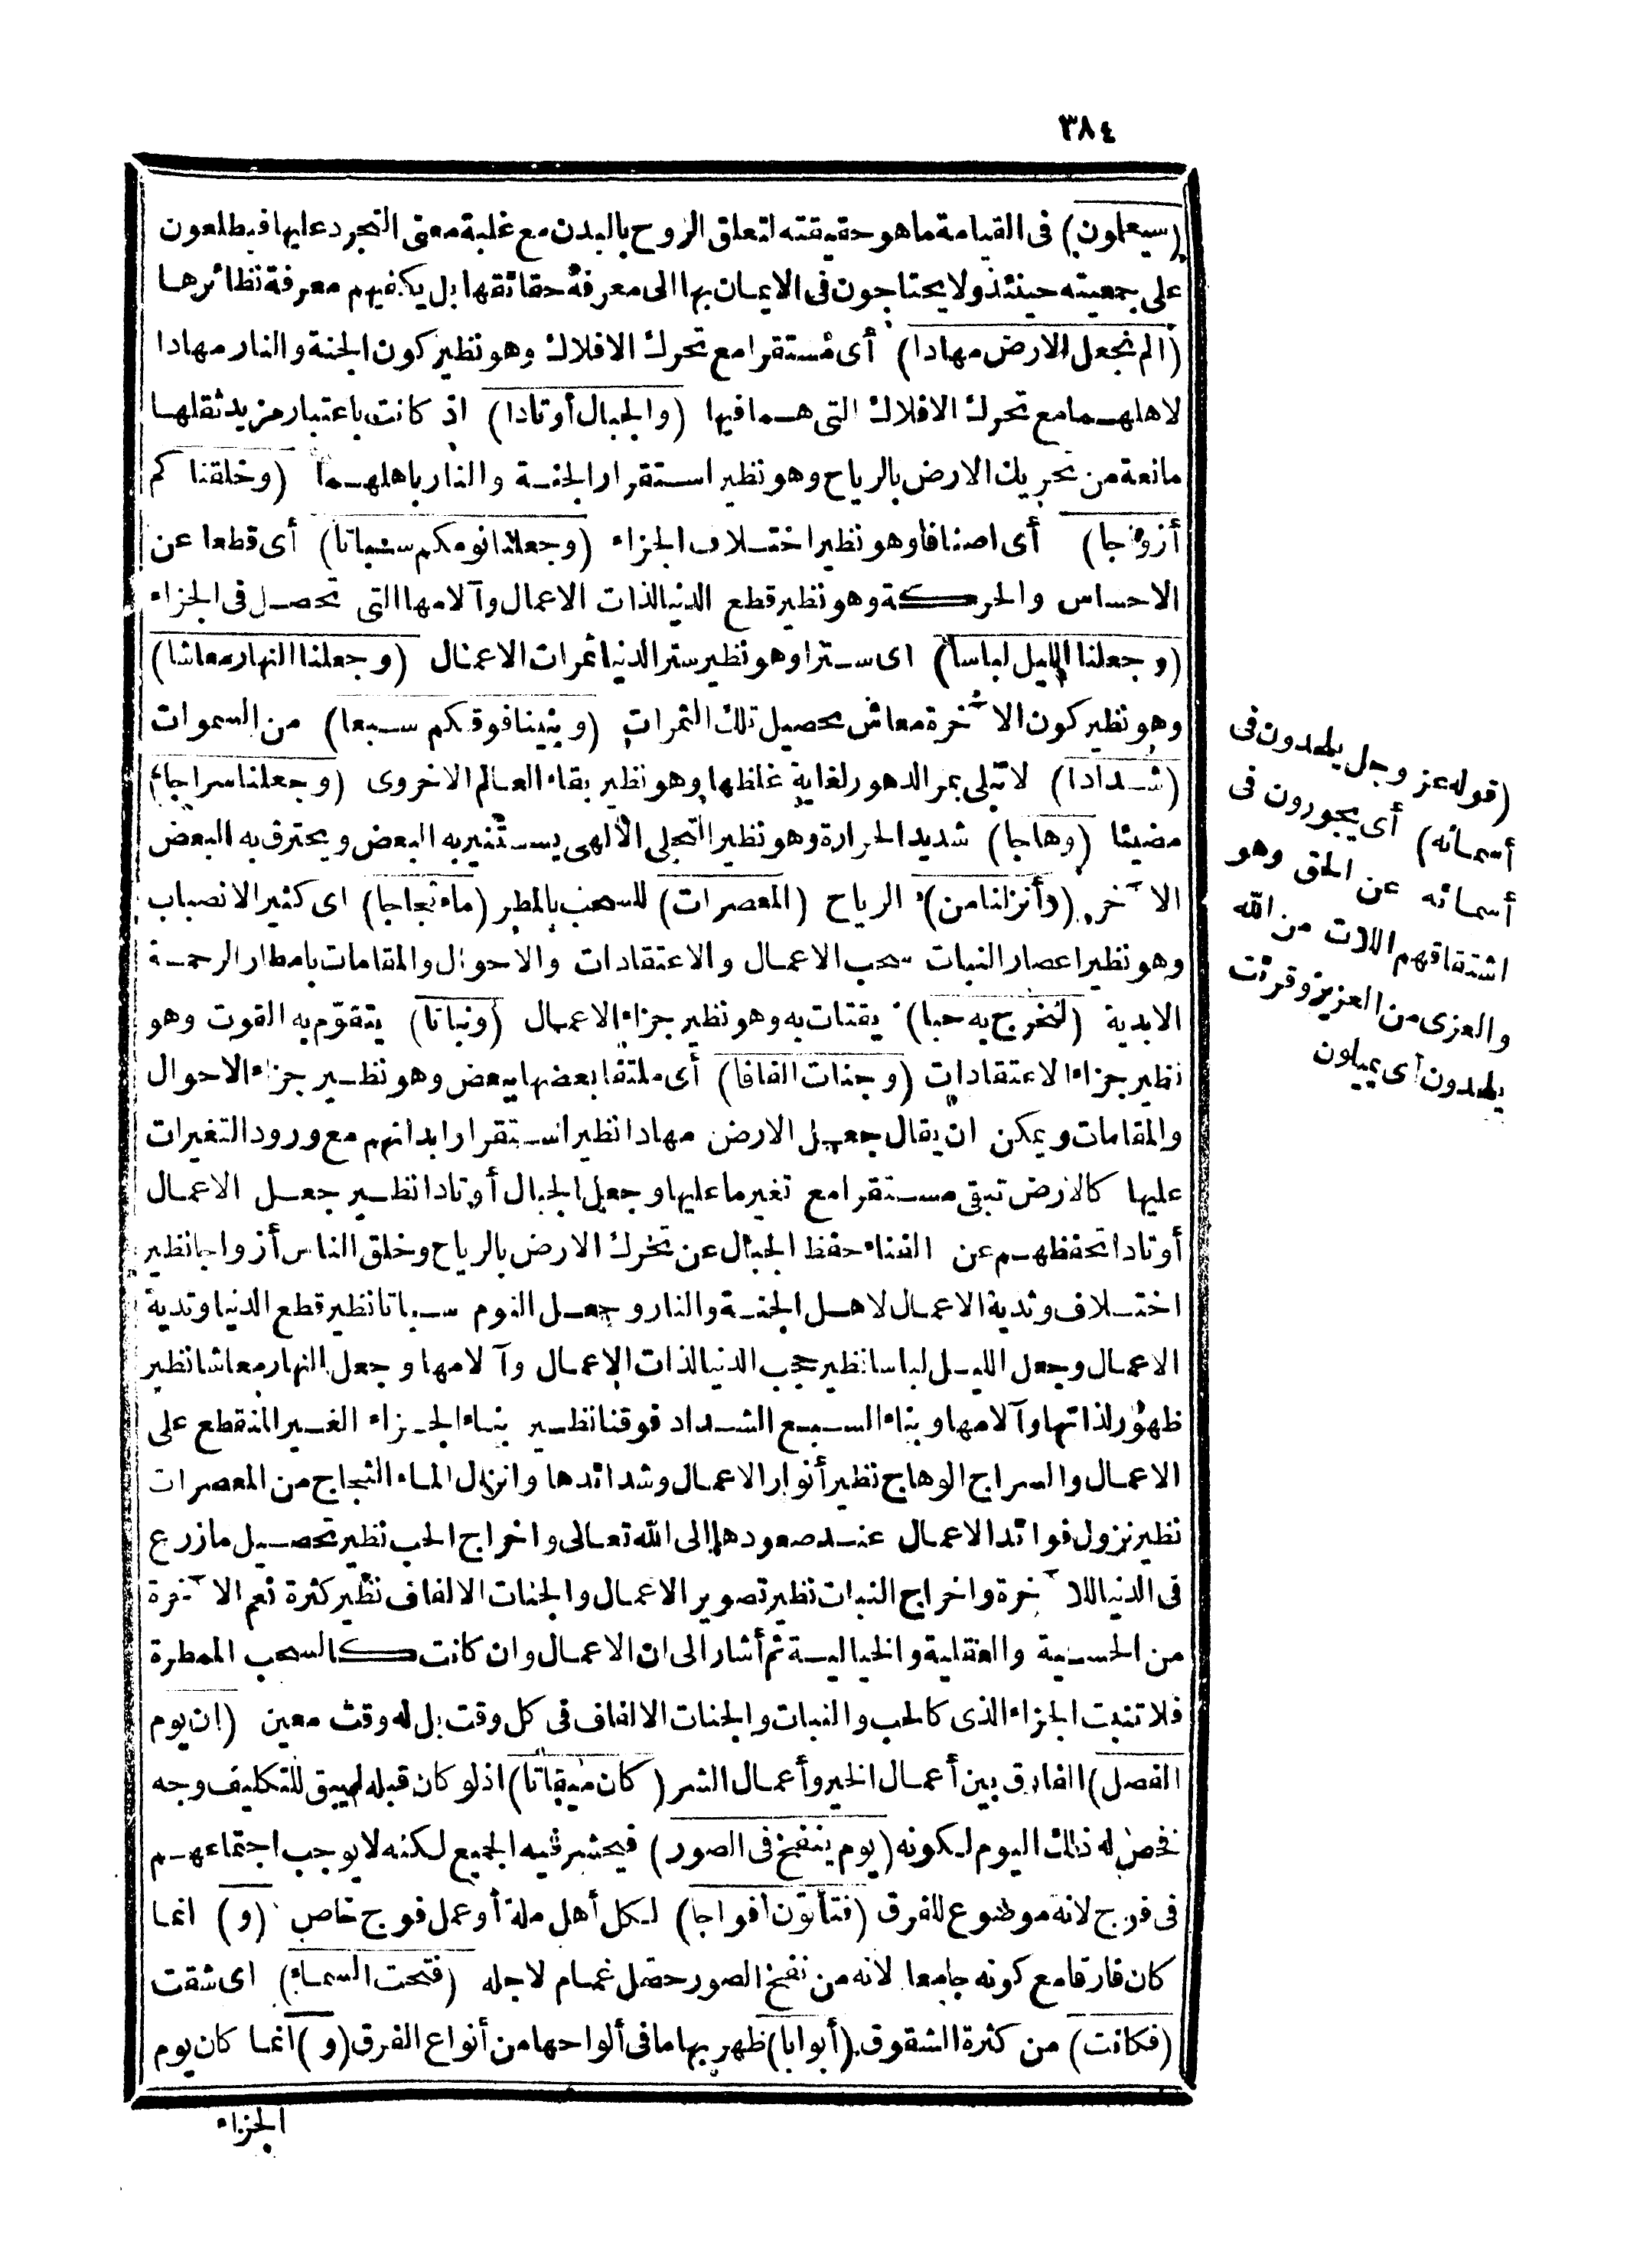 ٣٨٤
(سيعلمون) فى القيامة ما هو حقيقته لتعلق الروح بالبدن مع غلبة معنى التجرد عليها فيطلعون
على جمعيته حينئذ ولا يحتاجون فى الايمان بها الى معرفة حقائقها بل يكفيهم معرفة نظائرها
(ألم نجعل الارض مهادا) أى مستقرا مع تحرك الافلاك وهو نظير كون الجنة والنار مهادا
لاهلهما مع تحرك الافلاك التى هما فيها (والجبال أوتادا) اذ كانت باعتبار مزيد ثقلها
مانعة من تحريك الارض بالرياح وهو نظير استقرار الجنة والنار باهلهما (وخلقناكم
أزواجا) أى اصنافا وهو نظير اختلاف الجزاء (وجعلنا نومكم سباتا) أى قطعا عن
الاحساس والحركة وهو نظير قطع الدنيا لذات الاعمال وآلامها التى تحصل فى الجزاء
(وجعلنا الليل لباسا) اى سترا وهو نظير ستر الدنيا ثمرات الاعمال (وجعلنا النهار معاشا)
وهو نظير كون الآخرة معاش تحصيل تلك الثمرات (وبنينا فوقكم سبعا) من السموات
(شدادا) لا تبلى بمر الدهور لغاية غلظها وهو نظير بقاء العالم الاخروى (وجعلنا سراجا)
مضيئا (وهاجا) شديد الحرارة وهو نظير التجلى الالهى يستنير به البعض ويحترق به البعض
الآخر (وأنزلنا من) الرياح (المعصرات) للسحب بالمطر (ماء ثجاجا) اى كثير الانصباب
وهو نظير اعصار النبات سحب الاعمال والاعتقادات والاحوال والمقامات بامطار الرحمة
الابدية (لنخرج به حبا) يقتات به وهو نظير جزاء الاعمال (ونباتا) يتقوّم به القوت وهو
نظير جزاء الاعتقادات (وجنات الفافا) أى ملتفا بعضها ببعض وهو نظير جزاء الاحوال
والمقامات ويمكن ان يقال جعل الارض مهادا نظير استقرار ابدانهم مع ورود التغيرات
عليها كالارض تبقى مستقرا مع تغير ما عليها وجعل الجبال أوتادا نظير جعل الاعمال
أوتادا تحفظهم عن الفناء حفظ الجبال عن تحرك الارض بالرياح وخلق الناس أزواجا نظير
اختلاف وتدية الاعمال لاهل الجنة والنار وجعل النوم سباتا نظير قطع الدنيا وتدية
الاعمال وجعل الليل لباسا نظير حجب الدنيا لذات الاعمال وآلامها وجعل النهار معاشا نظير
ظهور لذاتها وآلامها وبناء السبع الشداد فوقنا نظير بناء الجزاء الغير المنقطع على
الاعمال والسراج الوهاج نظير أنوار الاعمال وشدائدها وانزال الماء الثجاج من المعصرات
نظير نزول فوائد الاعمال عند صعودها الى الله تعالى واخراج الحب نظير تحصيل ما زرع
فى الدنيا للآخرة واخراج النبات نظير تصوير الاعمال والجنات الالفاف نظير كثرة نعم الآخرة
من الحسية والعقلية والخيالية ثم أشار الى ان الاعمال وان كانت كالسحب الممطرة
فلا تنبت الجزاء الذى كالحب والنبات والجنات الالفاف فى كل وقت بل له وقت معين (ان يوم
الفصل) الفارق بين أعمال الخير وأعمال الشر (كان ميقاتا) اذ لو كان قبله لم يبق للتكليف وجه
فخص له ذلك اليوم لكونه (يوم ينفخ فى الصور) فيحشر فيه الجميع لكنه لا يوجب اجتماعهم
فى فوج لانه موضوع للفرق (فتأتون أفواجا) لكل أهل ملة أو عمل فوج خاص (و) انما
كان فارقا مع كونه جامعا لانه من نفخ الصور حصل غمام لاجله (فتحت السماء) اى شقت
(فكانت) من كثرة الشقوق (أبوابا) ظهر بها ما فى ألواحها من أنواع الفرق (و) انما كان يوم
الجزاء
(قوله عز وجل يلحدون فى
أسمائه) أى يجورون فى
أسمائه عن الحق وهو
اشتقاقهم اللات من الله
والعزى من العزيز وقرئت
يلحدون أى يميلون